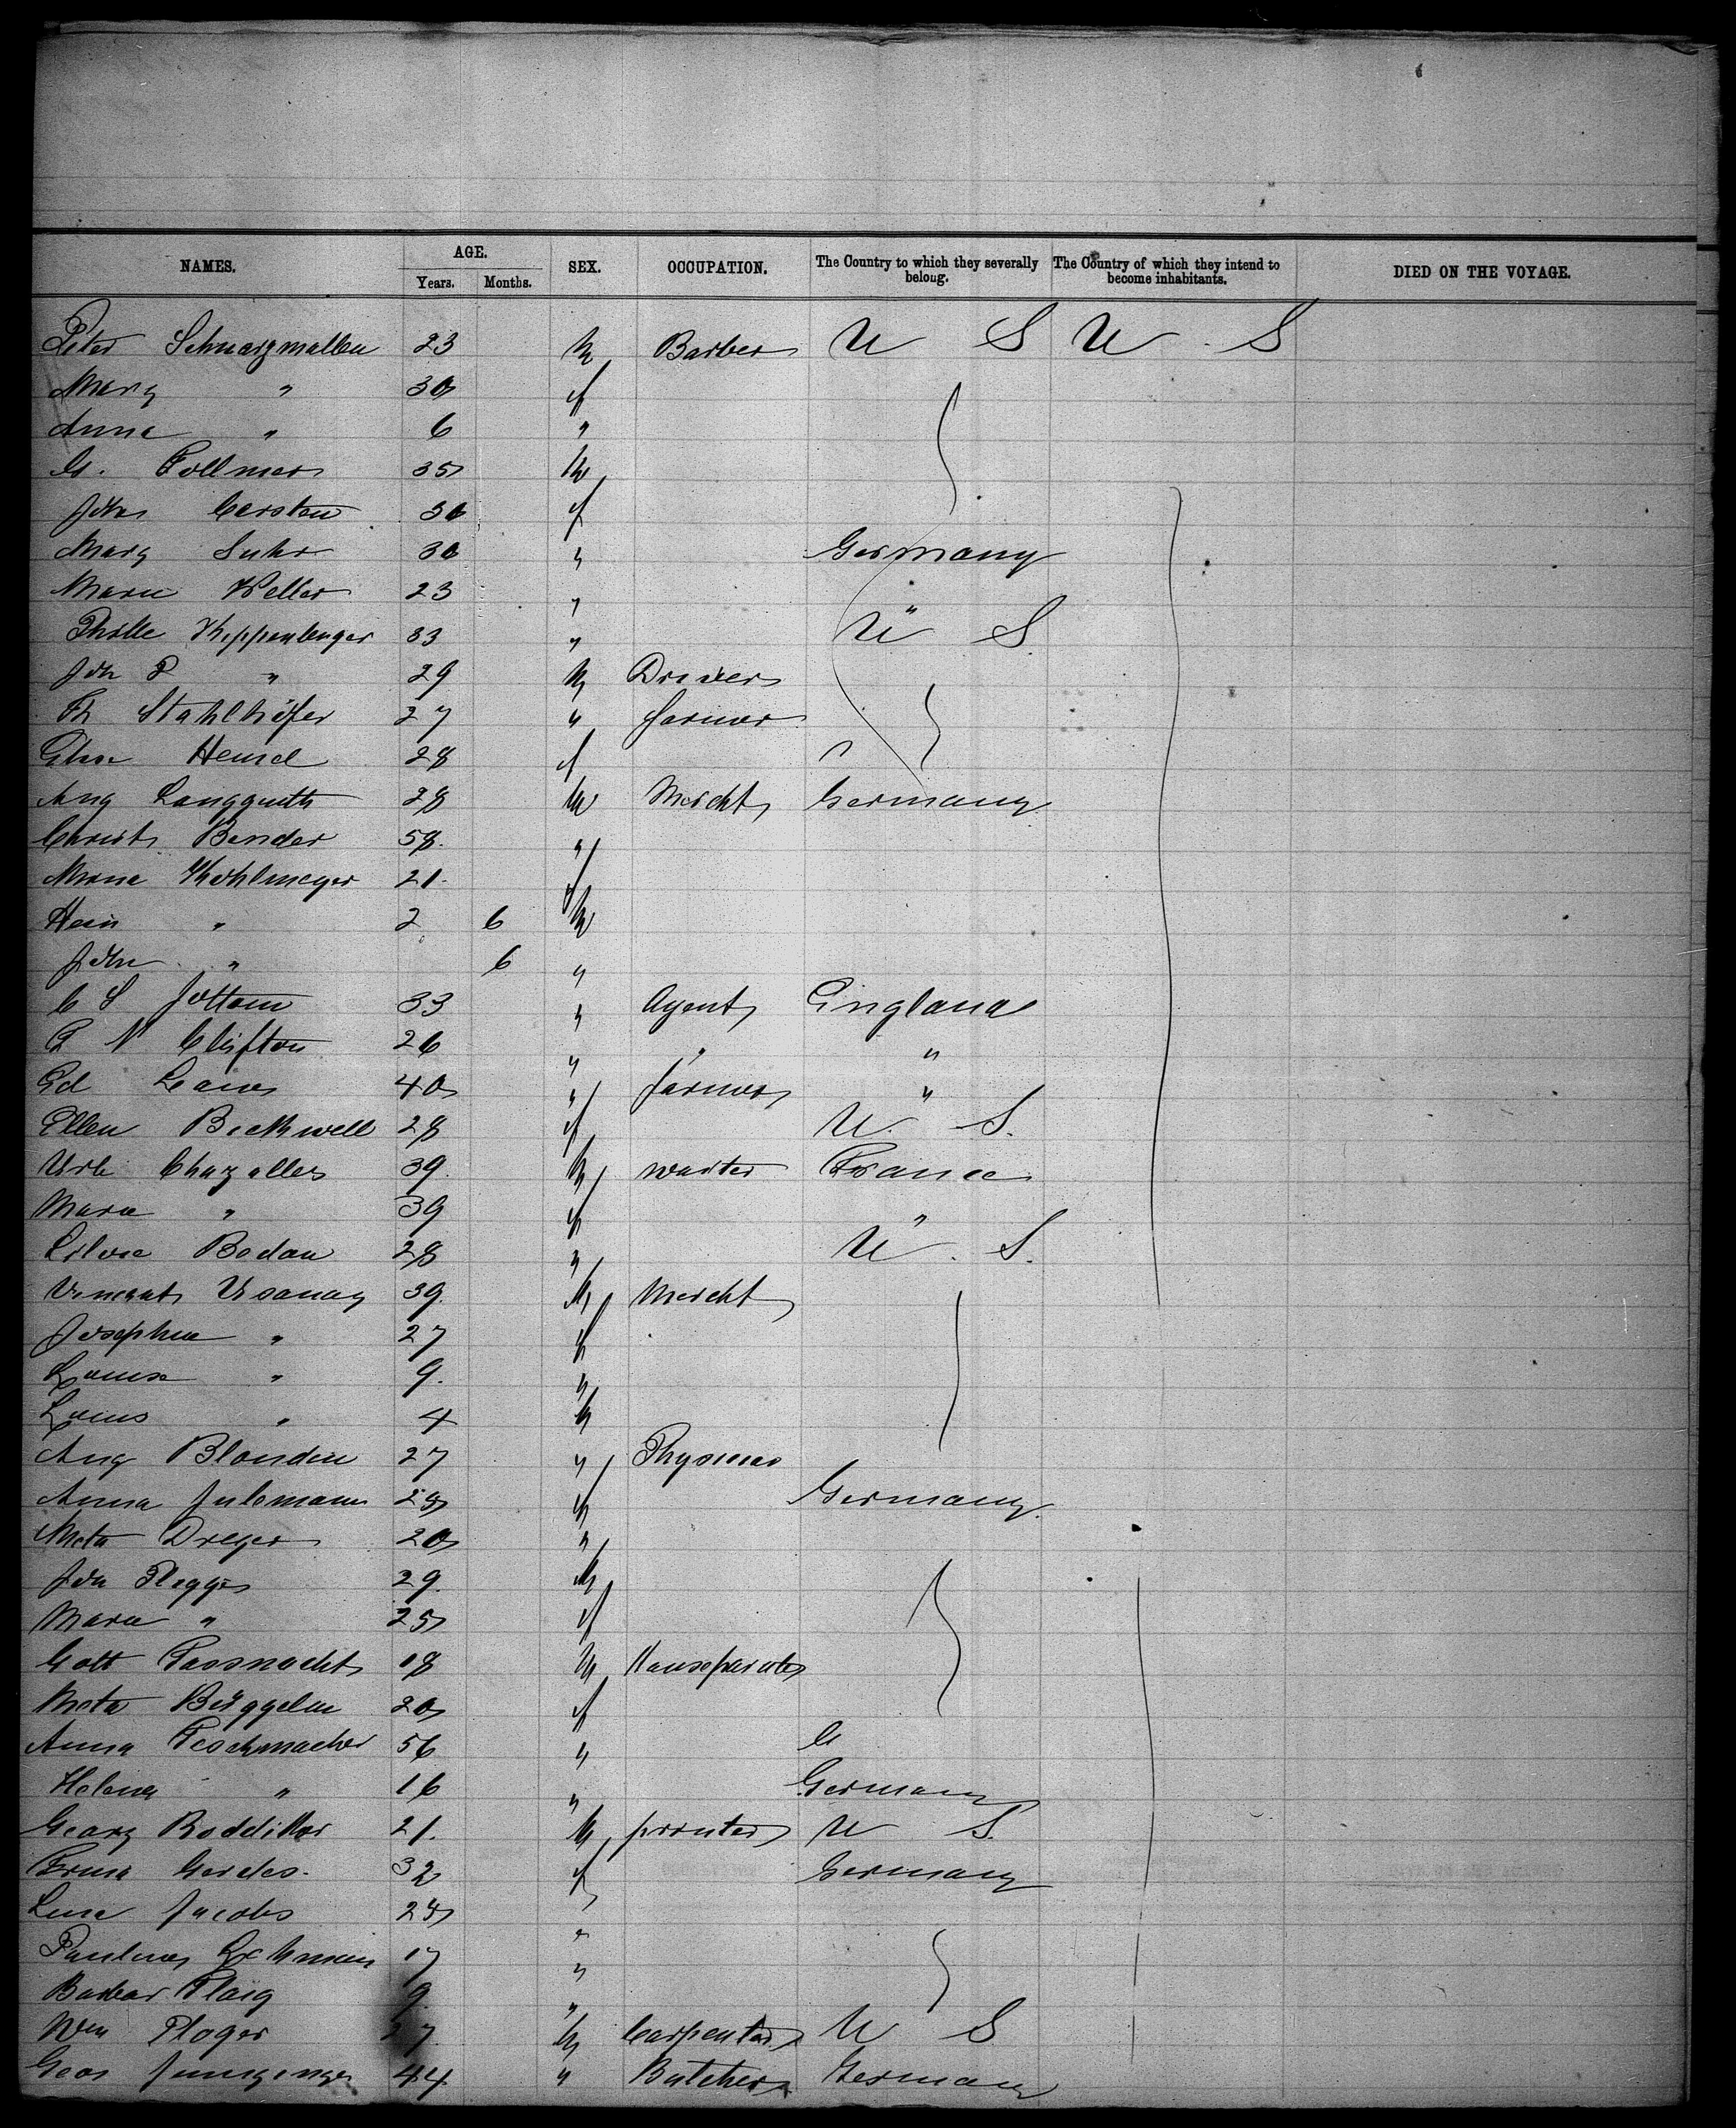 NAMES. AGE. SEX. OCCUPATION. The Country to which they severally belong. The Country of which they intend to become inhabitants. DIED ON THE VOYAGE.
Years. Months.
Peter Schwarzmallen 23 M Barber U S U S
Mary " 30 f
Anna " 6 "
G. Follmer 35 M
John Carsten 30 f
Mary Suhr 30 " Germany
Marie Weller 23 "
Kippenberger 33 " U S
Joh P " 29 M Driver
Th Stahlhöfer 27 " farmer
Elise Hensel 28 f "
Aug Langguth 28 M Mercht Germany
Christ Bender 58. "
Kohlmeyer 21. f
Hein " 2 6 M
John " 6 "
C S Jottam 33 " Agent England
F N Clifton 26 " " "
Ed Laws 40 " farmer "
Ellen Beckwell 28 f U. S.
Urb Chazalles 39. M waiter France
Marie " 39 f "
Bodan 28 " U. S.
Vincent Usanay 39. M Mercht
Josephine " 27 f
Louise " 9. "
Louis " 4 M
Aug Blondin 27 "
Anna Julemann 25 f Germany.
Meta Dreyer 20 "
Joh Plegges 29. M
Marie " 25 f
Gott Fassnacht 18 M Housepainter
Meta Büggeln 20 f
Anna Teschmacher 56 " G
Helena " 16 " Germany
Georg Roddiker 21. M printer U S.
Gerdes. 32 f Germany
Line Jacobs 24 "
Pauline Lehmann 17 "
Barbar Plaig 9. "
Wm Ploger 27. M Carpenter U S
Geor Junginger 44 " Butcher Germany